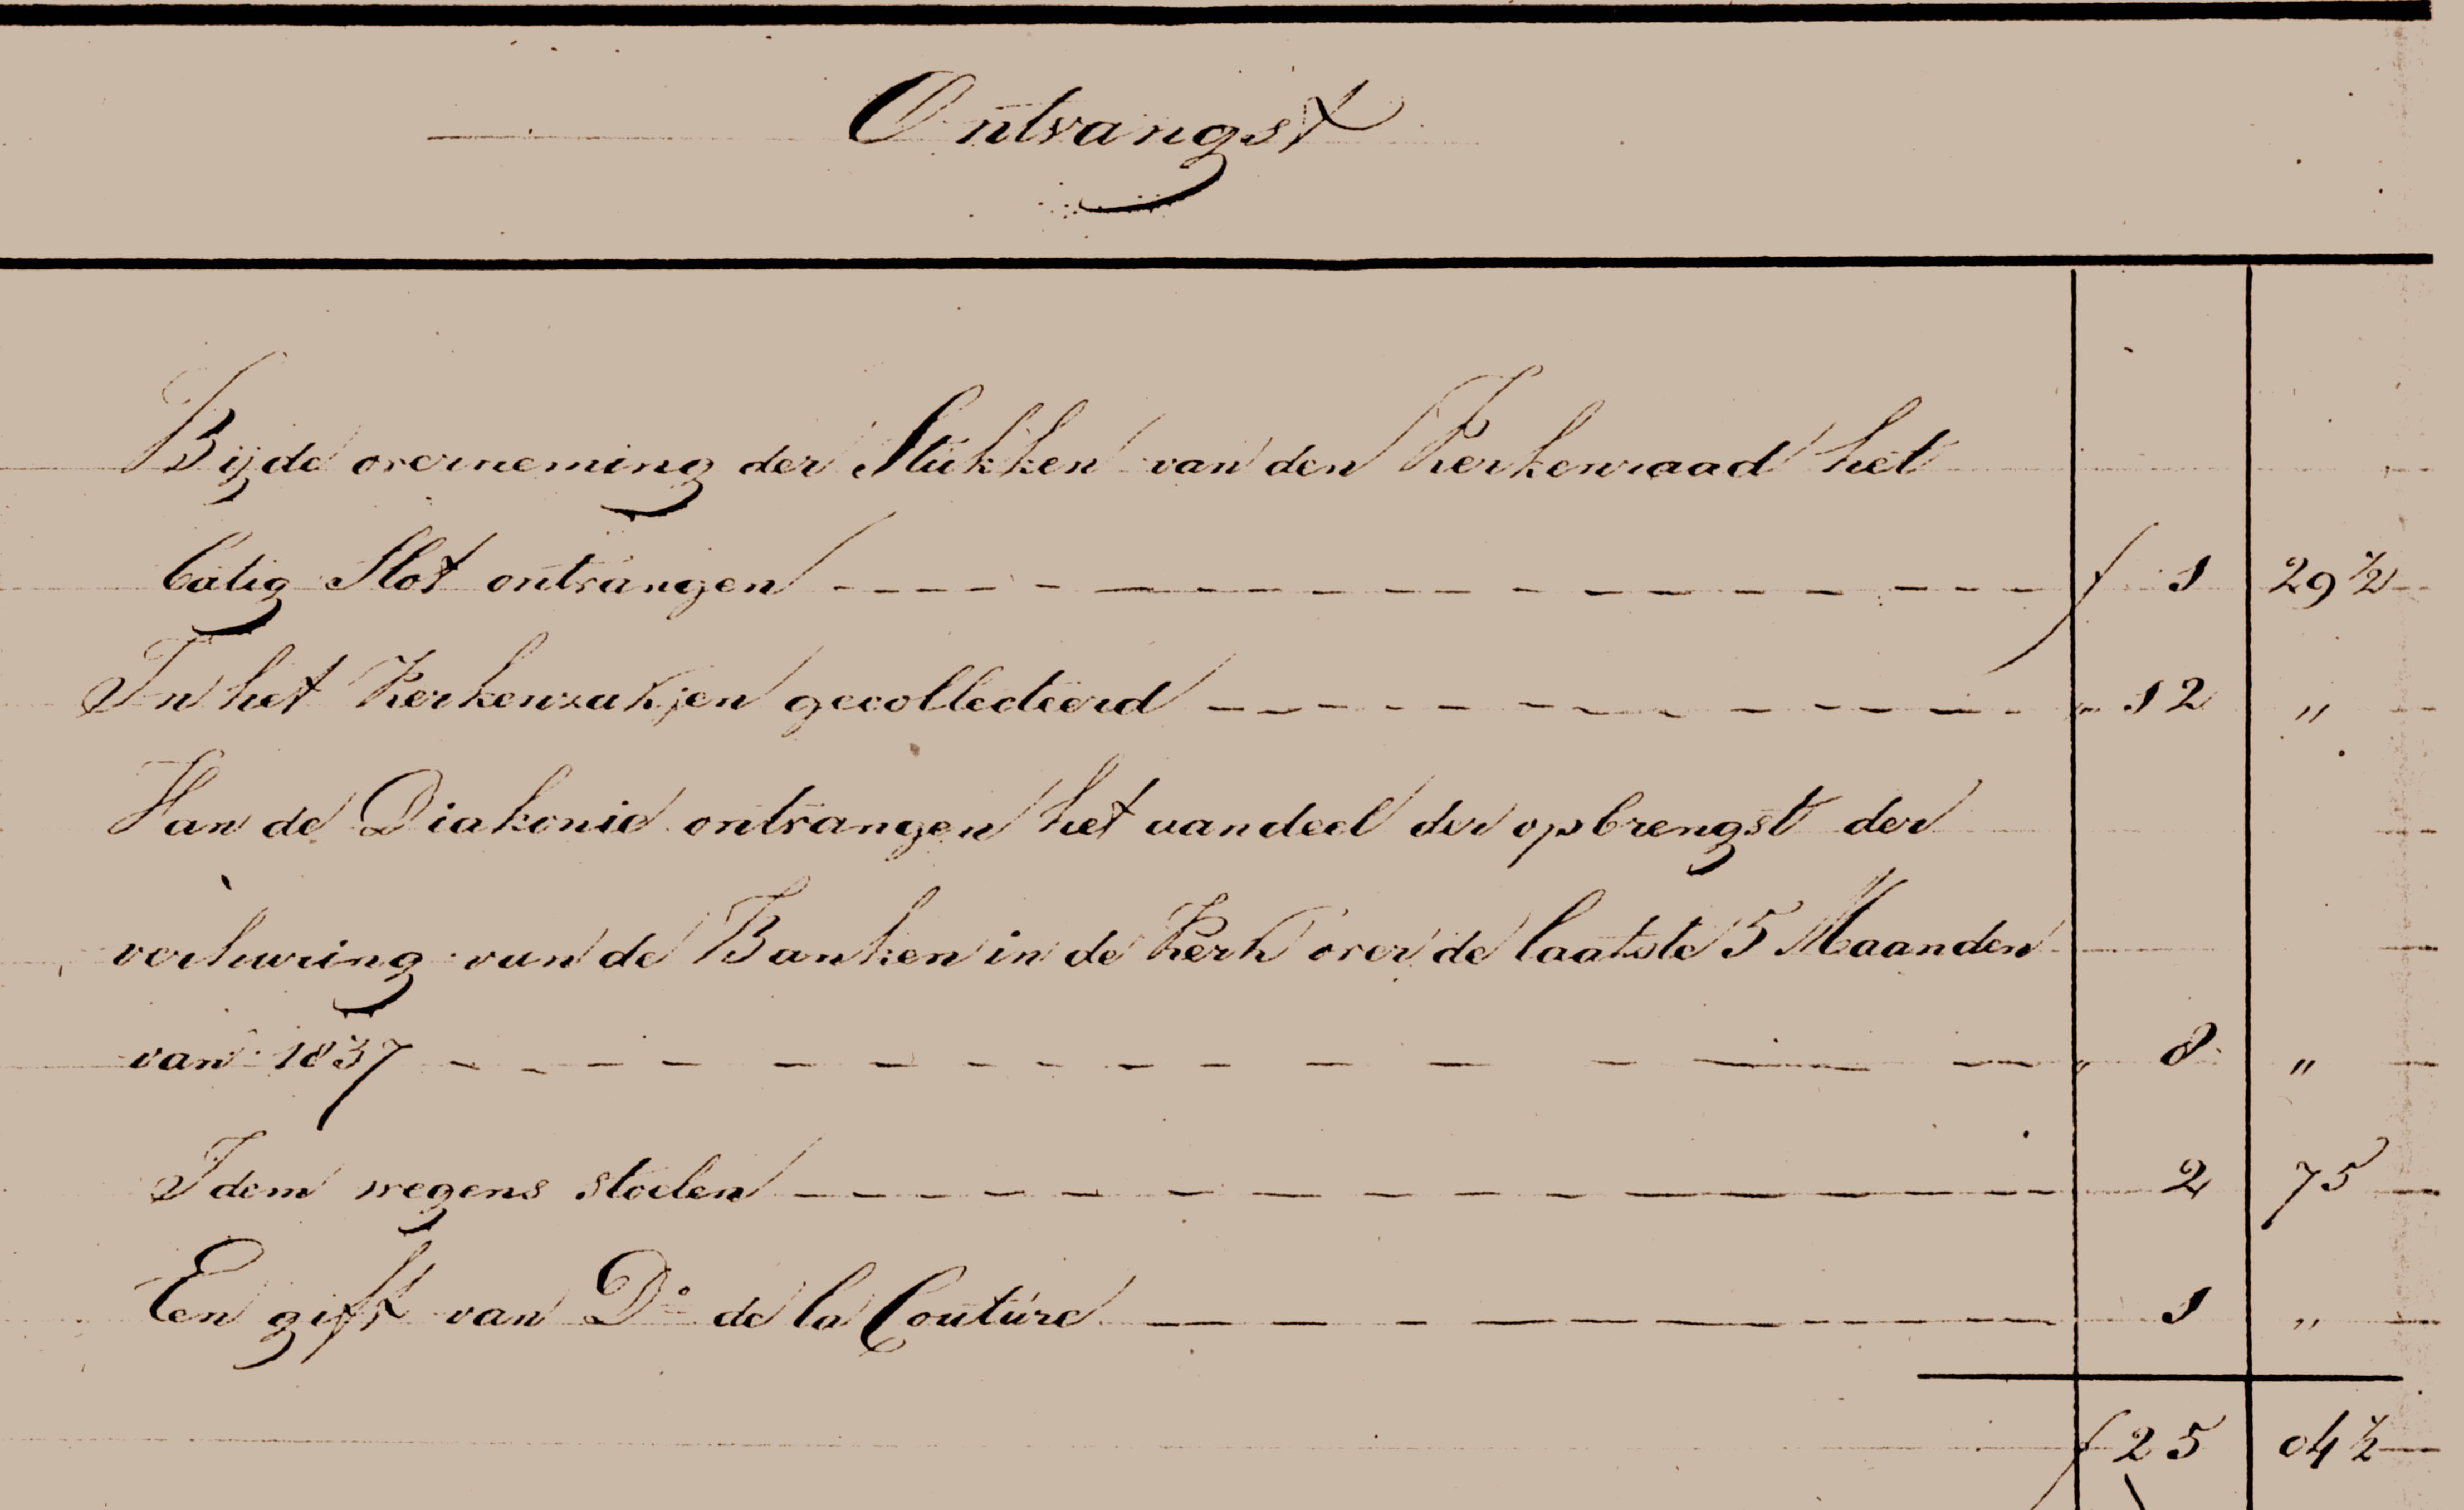 Ontvangst
Bij de overneming der Stukken van den Kerkenraad het
batig Slot ontvangen f 1 29 ½
In het Kerkenzakjen gecollecteerd „ 12 „
Van de Diakonie ontvangen het aandeel der opbrengst der
verhuring van de Banken in de Kerk over de laatste 5 Maanden
van 1837 „ 8 „
Idem wegens stoelen 2 75
Een gift van Do de la Couture 1 „
f 25 04 ½